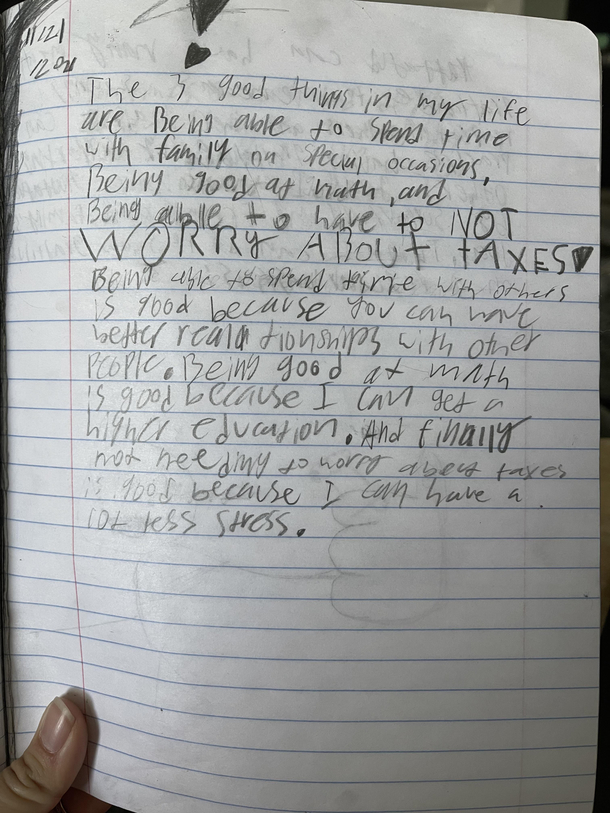 The 3 good things in my life
are Being able to spend time
with family on special occasions,
Being good at math, and
Being able to have to NOT
WORRY ABOUT TAXES
Being able to spend time with others
is good because you can have
better realationships with other
People. Being good at math
is good because I can get a
higher education. And finally
not needing to worry about taxes
is good because I can have a
lot less stress.